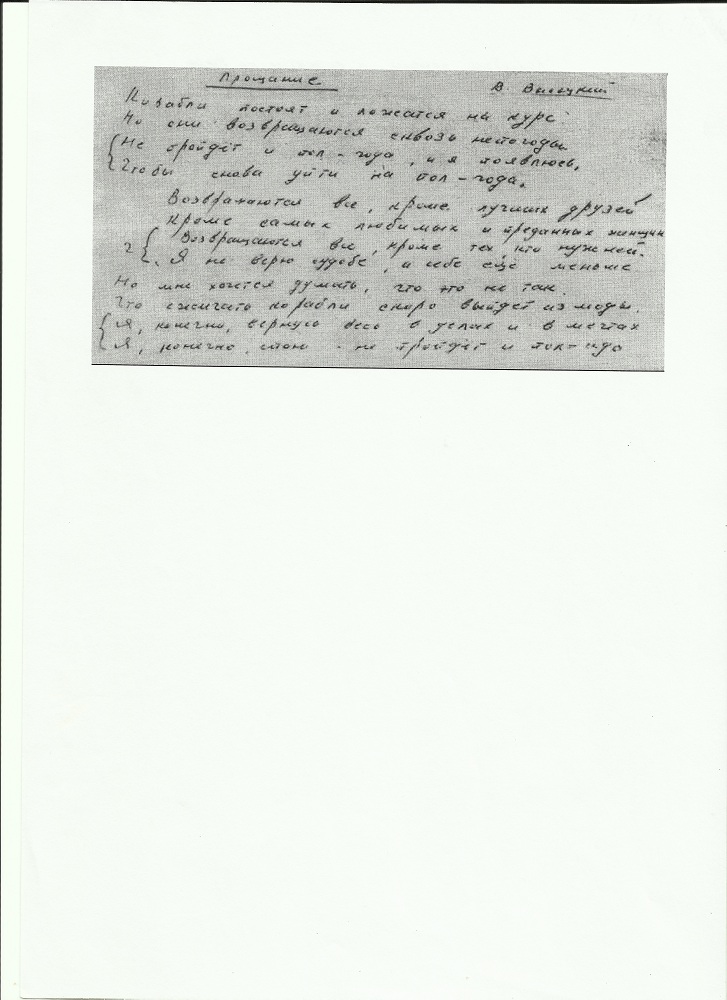 Прощание В. Высоцкий
Корабли постоят и ложатся на курс
Но они возвращаются сквозь непогоды.
Не пройдёт и пол-года, и я появлюсь,
Чтобы снова уйти на пол-года.
Возвращаются все, кроме лучших друзей
Кроме самых любимых и преданных женщин
2 Возвращаются все, кроме тех кто нужней.
Я не верю судьбе, а себе ещё меньше
Но мне хочется думать, что это не так.
Что сжигать корабли скоро выйдет из моды.
Я, конечно, вернусь весь в и в мечтах
Я, конечно, спою - не пройдёт и пол-года